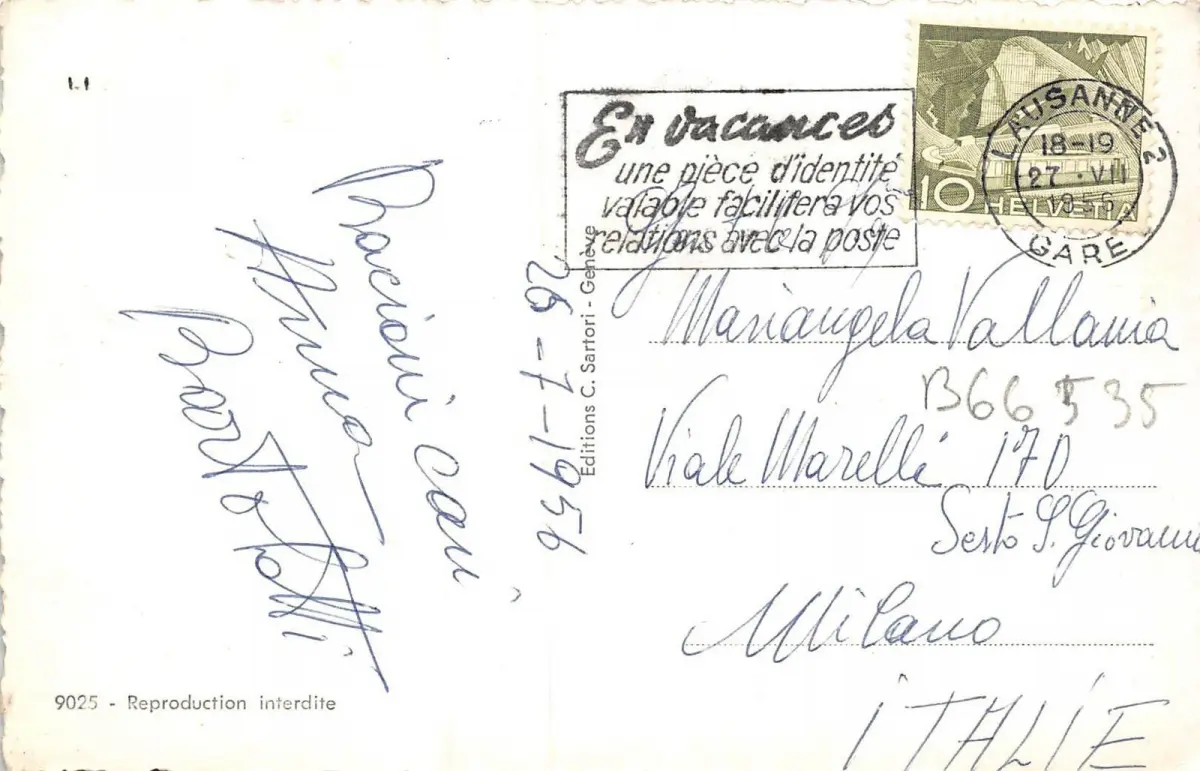 Bacioni cari
Anna
Bartolotti
26-7-1956
Editions C. Sartori - Genève
9025 - Reproduction interdite
En vacances
une pièce d'identité
valable facilitera vos
relations avec la poste
10 HELVETIA
LAUSANNE 2
18-19
27 · VII
1956
GARE
Mariangela Vallania
B66 535
Viale Marelli 170
Sesto S. Giovanni
Milano
ITALIE